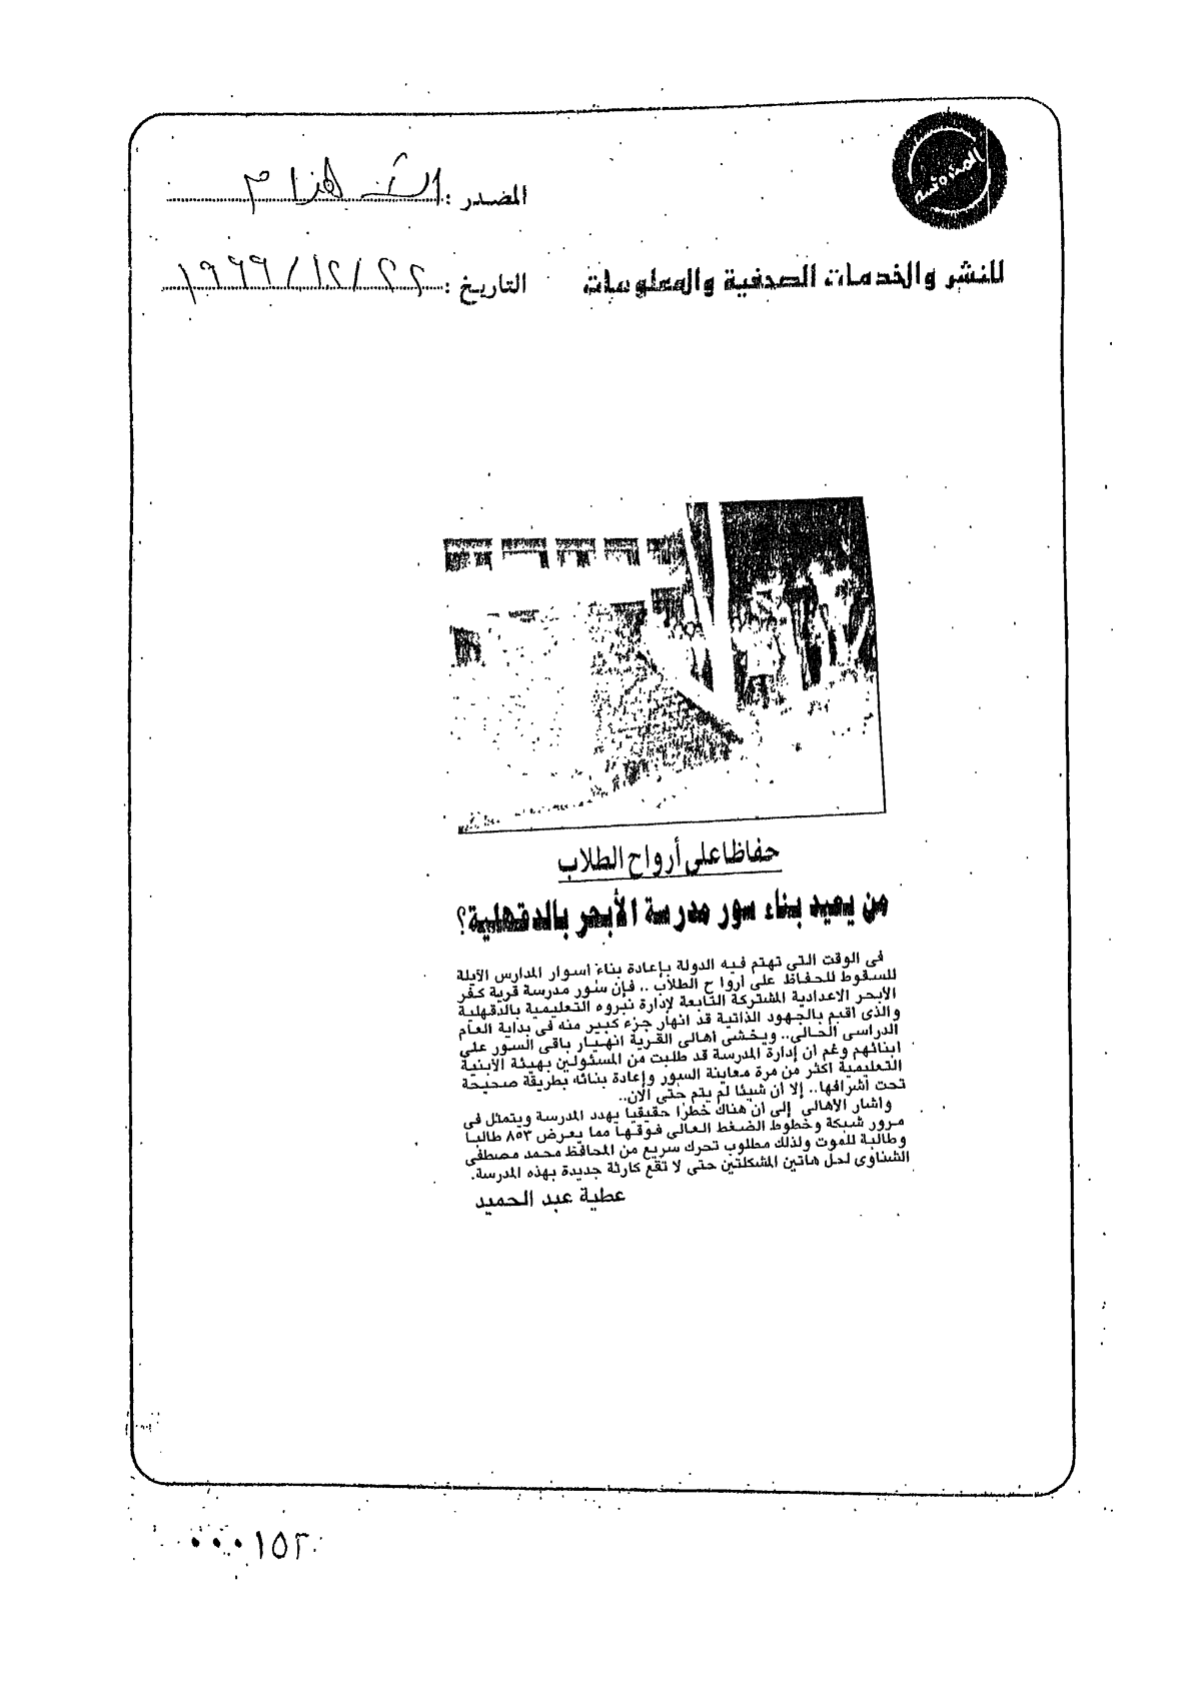 المصدر : الأهرام
للنشر والخدمات الصحفية والمعلومات
التاريخ : ٢٢/١٢/١٩٩٩
حفاظا على أرواح الطلاب
من يعيد بناء سور مدرسة الأبحر بالدقهلية؟
فى الوقت التى تهتم فيه الدولة بإعادة بناء اسوار المدارس الآيلة
للسقوط للحفاظ على ارواح الطلاب .. فإن سور مدرسة قرية كفر
الأبحر الاعدادية المشتركة التابعة لإدارة نبروه التعليمية بالدقهلية
والذى اقيم بالجهود الذاتية قد انهار جزء كبير منه فى بداية العام
الدراسى الحالى.. ويخشى أهالى القرية انهيار باقى السور على
ابنائهم وغم ان إدارة المدرسة قد طلبت من المسئولين بهيئة الأبنية
التعليمية اكثر من مرة معاينة السور وإعادة بنائه بطريقة صحيحة
تحت اشرافها.. إلا ان شيئا لم يتم حتى الآن..
واشار الأهالى إلى ان هناك خطرا حقيقيا يهدد المدرسة ويتمثل فى
مرور شبكة وخطوط الضغط العالى فوقها مما يعرض ٨٥٣ طالبا
وطالبة للموت ولذلك مطلوب تحرك سريع من المحافظ محمد مصطفى
الشناوى لحل هاتين المشكلتين حتى لا تقع كارثة جديدة بهذه المدرسة.
عطية عبد الحميد
٠٠٠١٥٢